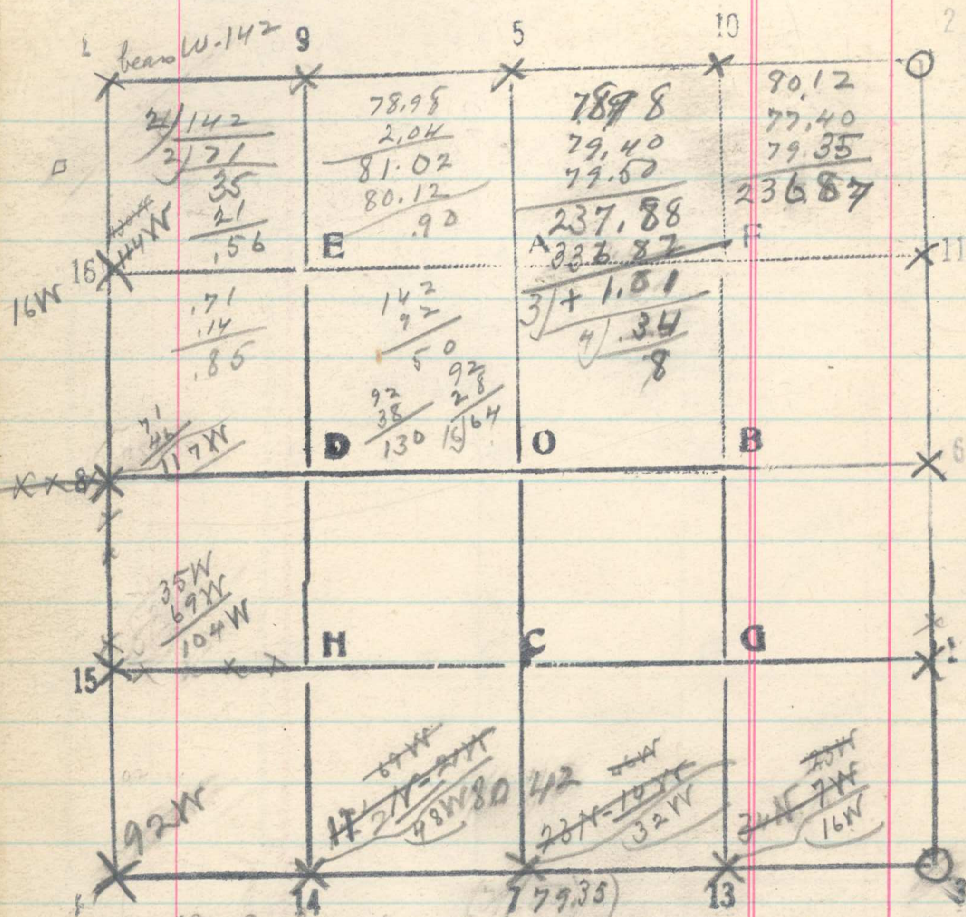 1 bears W-142 9 5 10 2
2/142
2/71
35
21
.56
78.98
2.04
81.02
80.12
.90
7898
79.40
79.50
237.88
336.87
3/+ 1.01
4/.34
8
80.12
77.40
79.35
236.87
114W
E A F
16 11
16W
.71
.14
.85
142
92
50
92
38
130
92
28
15/64
71
46
117W
D O B
X X X 8 6
35W
69W
104W
H C G
15
92W
67W
21N-21W
98W
80 42
46W
23N-10W
32W
23W
34N 7W
16W
14 7 13 3
79.35)